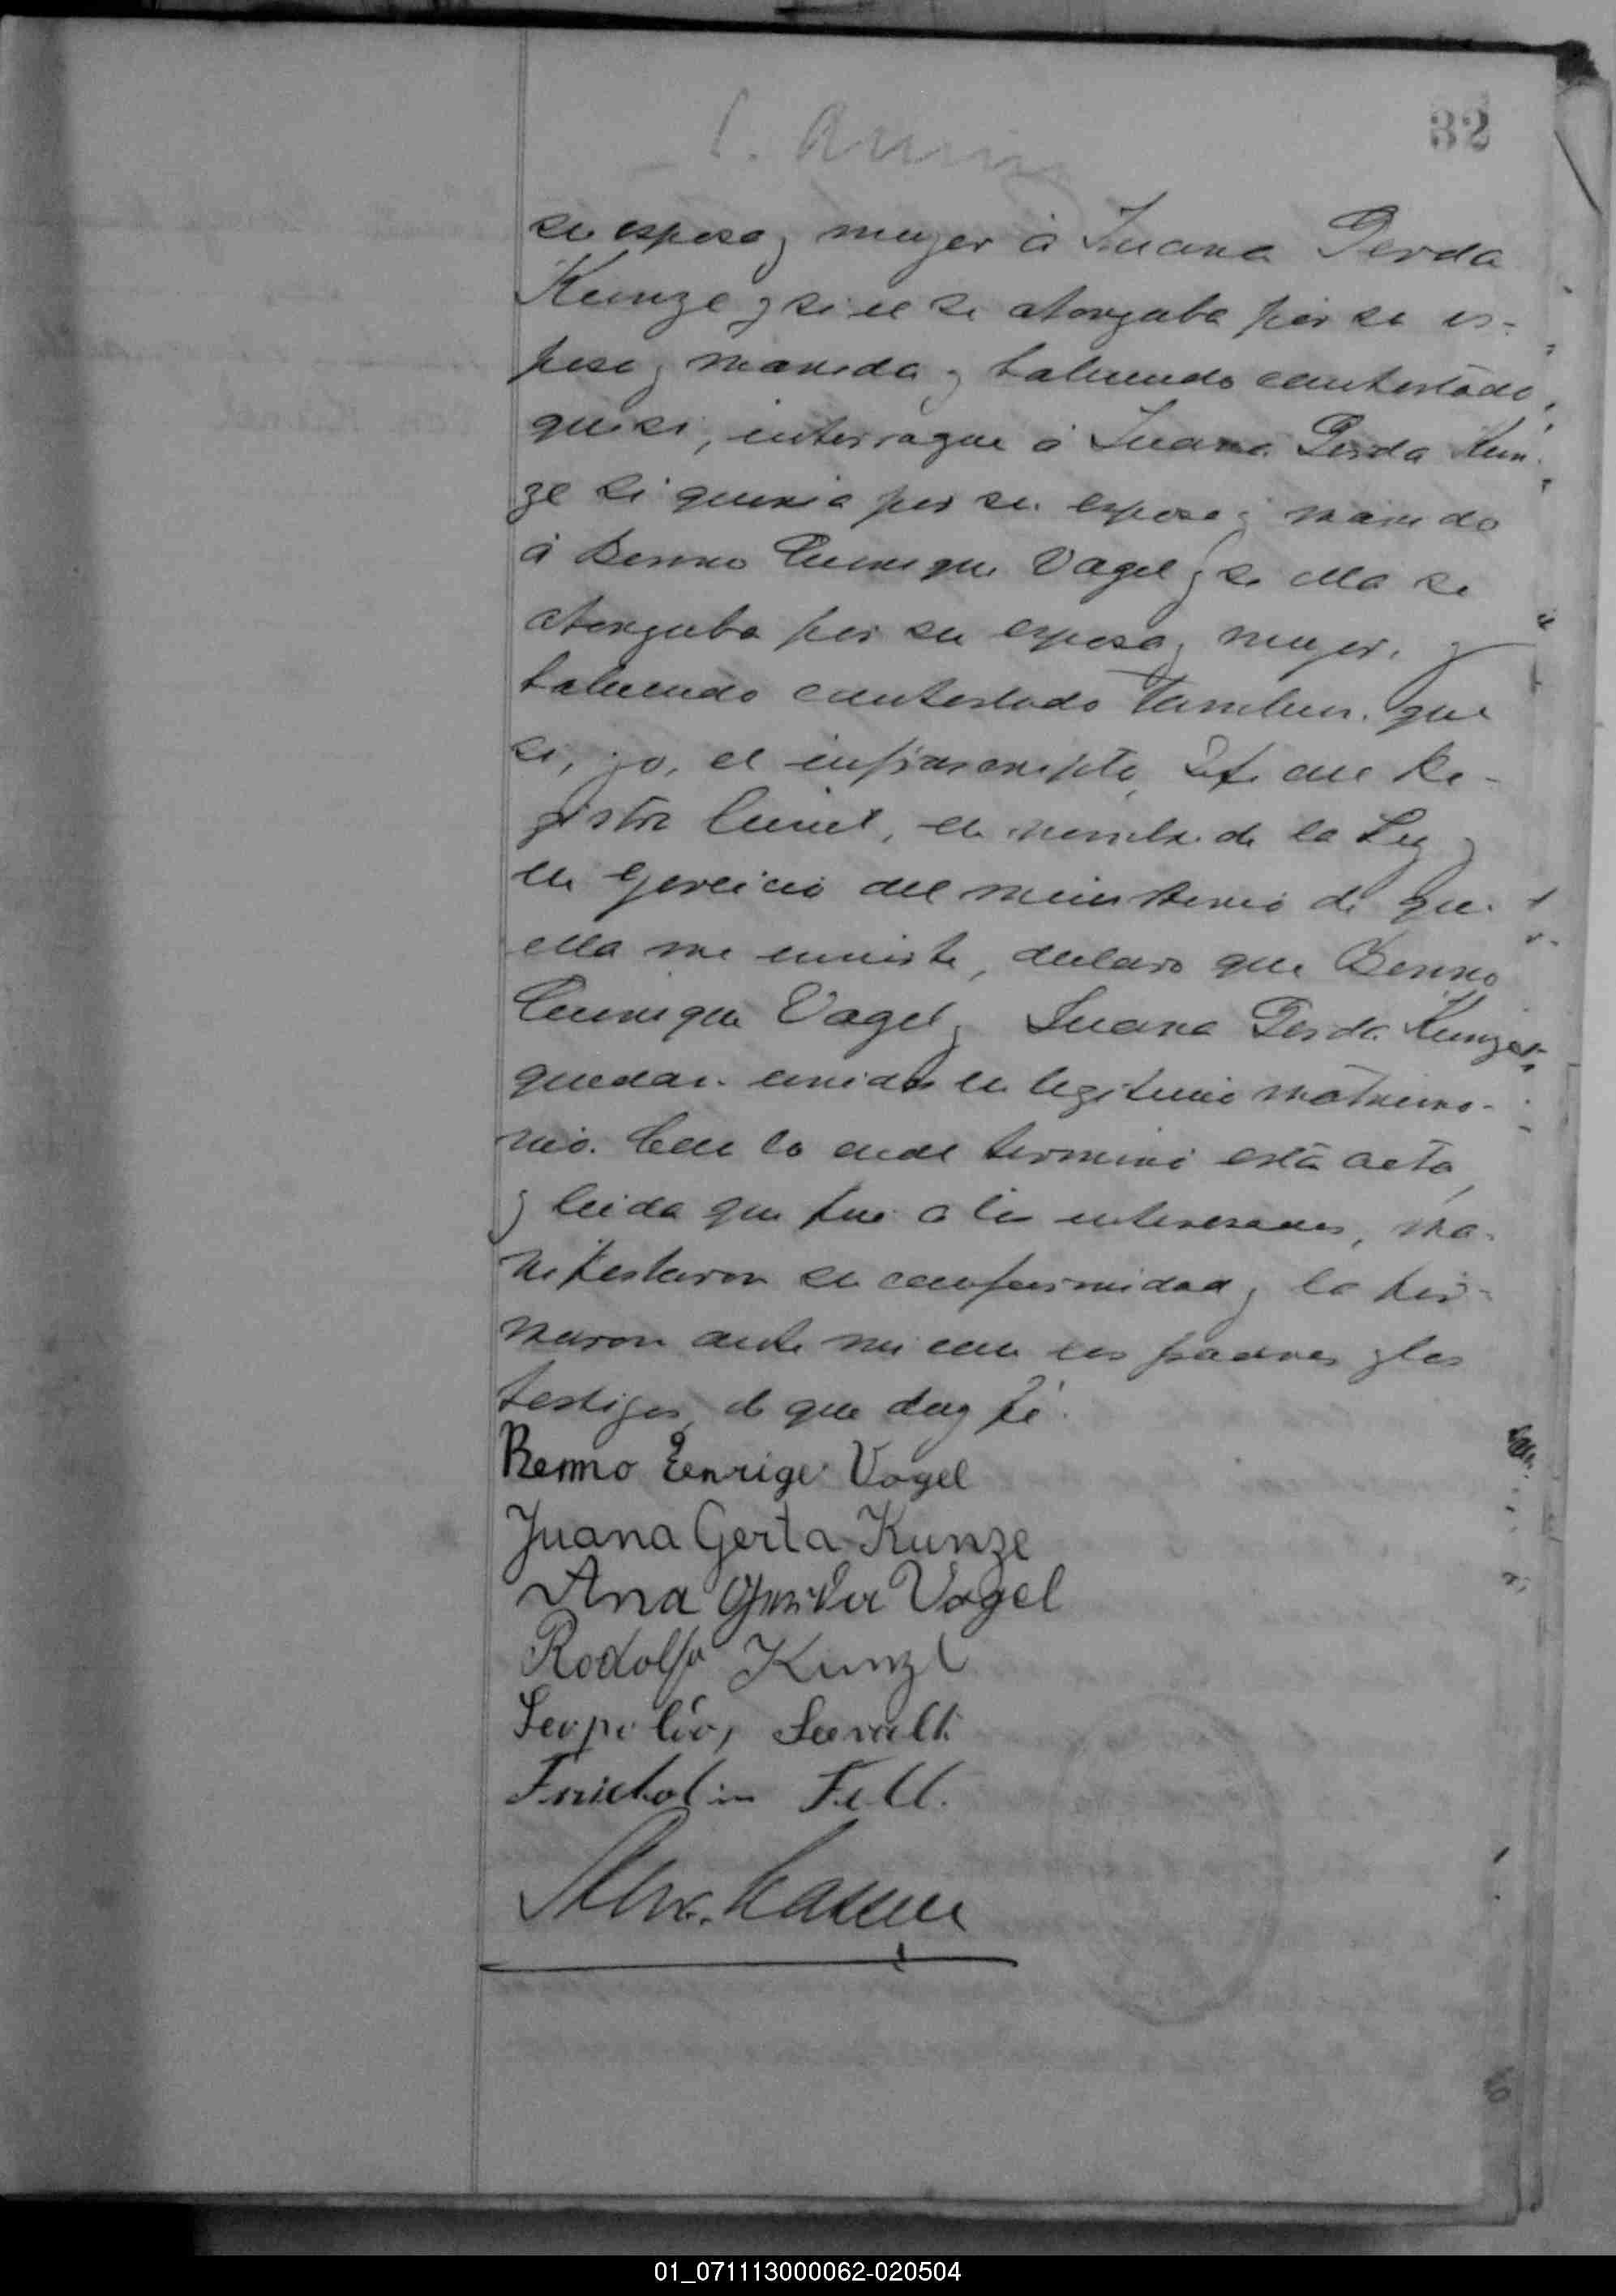 32
su esposa y mujer á Juana Gerda
Kunze y si él se otorgaba por su es-
poso y marido y habiendo contestado
que si, interrogue á Juana Gerda Kun-
ze si queria por su esposo y marido
á Benno Enrique Vogel y si ella se
otorgaba por su esposa y mujer, y
habiendo contestado tambien que
si, yo, el infrascripto, Jefe del Re-
gistro Civil, en nombre de la Ley y
en ejercicio del ministerio de que
ella me inviste, declaro que Benno
Enrique Vogel y Juana Gerda Kunze
quedan unidos en legitimo matrimo-
nio. Con lo cual terminó esta acta,
y leida que fue a los interesados, ma-
nifestaron su conformidad y la fir-
maron ante mi con los padres y los
testigos, de que doy fé.
Benno Eenrige Vogel
Juana Gerta Kunze
Ana Vogel
Rodolfo Kunze
Fell.
01_071113000062-020504